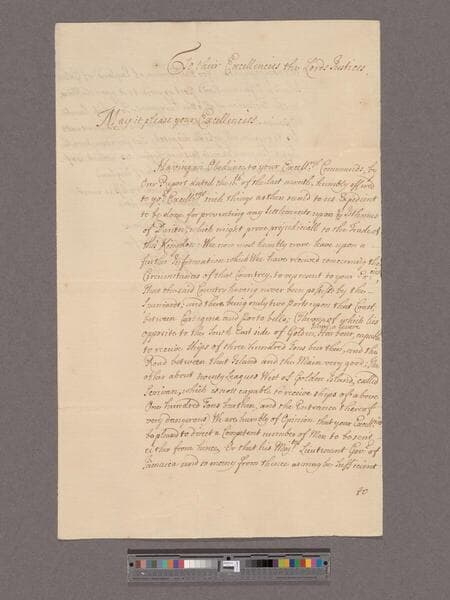 To their Excellencies the Lords Justices.
May it please your Excellencies
Having in Obedience to your Excell.cys Commands, by
Our Report dated the of the last month, humbly offered
to yo.r Excell.cys such things as then seem'd to us Expedient
to be done for preventing any Settlements upon ye Isthmus
of Darien, which might prove prejudiciall to the Trade of
this Kingdom: We now most humbly crave leave upon a
further Information which We have received concerning the
Circumstances of that Country, to represent to your Ex
That the said Country having never been possest by the
Spaniards; and there being only two Ports upon that Coast,
between Cartagena and Porto bello; The one of which lies
opposite to the South East side of Golden Island, capable
to receive Ships of three hundred Tons burthen, and the
Road between that Island and the Main very good; The
other about twenty Leagues West of Golden Island, called
Scrivan, which is not capable to receive ships of above
One hundred Tons burthen, and the Entrance thereof
very dangerous: We are humbly of Opinion that your Excell
be pleased to direct a Competent number of Men to be sent
either from hence, Or that his Maj.tys Lieutenant Gov.r of
Jamaica send so many from thence as may be sufficient
to